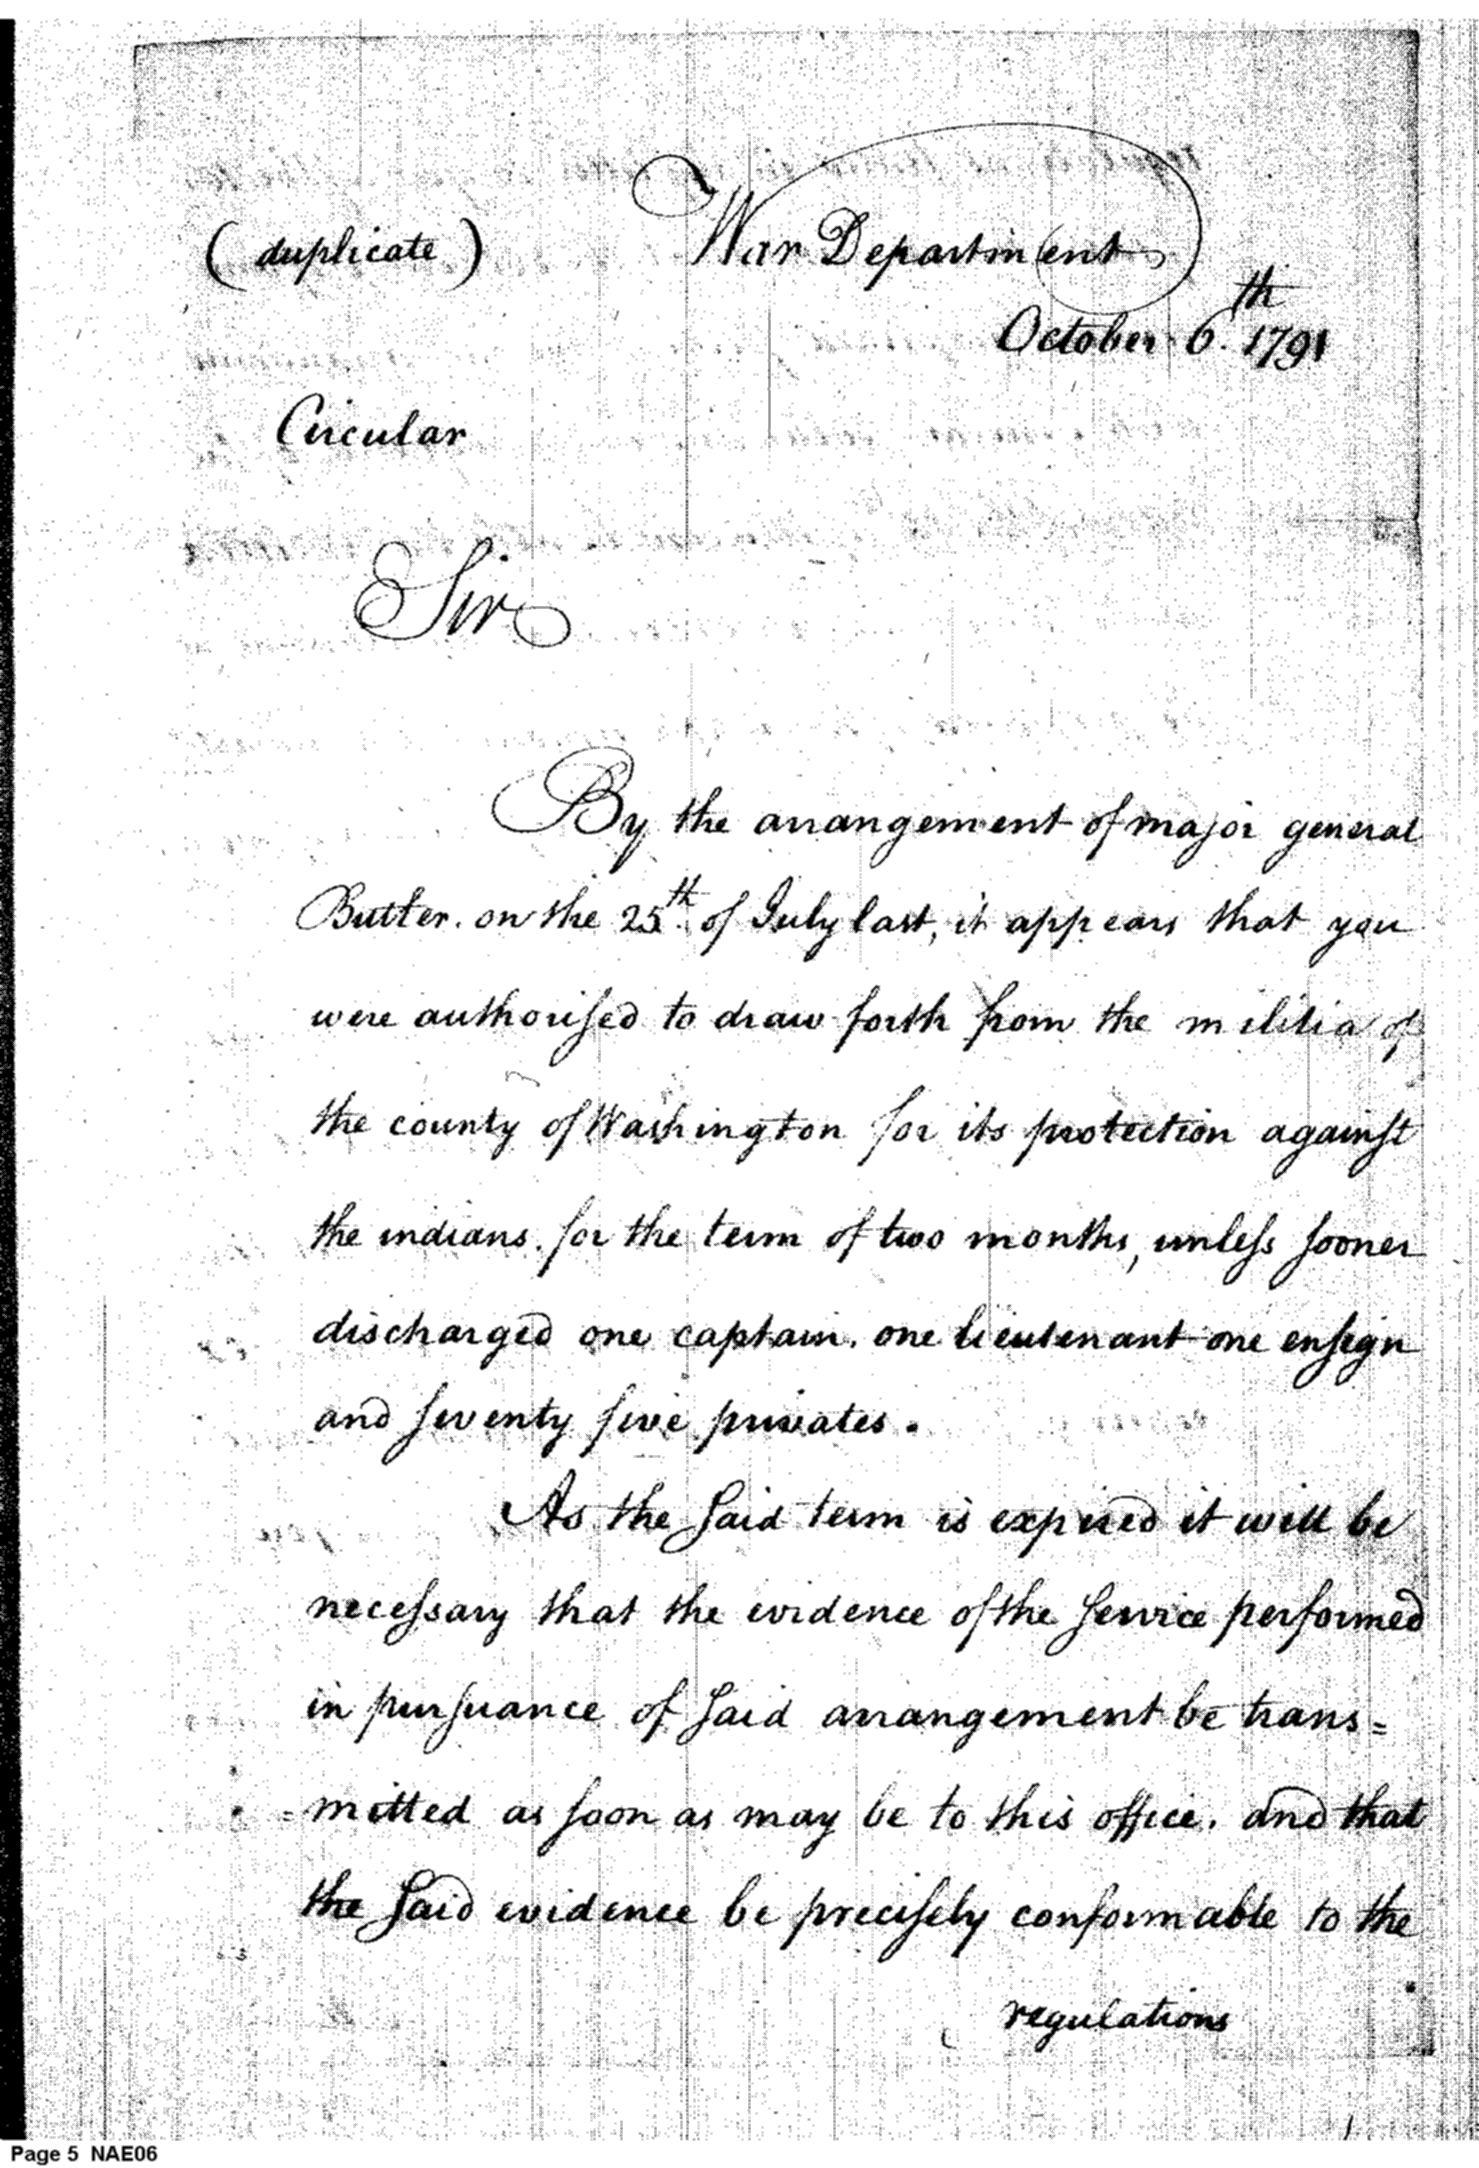 (duplicate) War Department
October 6.th 1791
Circular
Sir
By the arrangement of major general
Butler. on the 25th. of July last, it appears that you
were authorised to draw forth from the militia of
the county of Washington for its protection against
the indians. for the term of two months, unless sooner
discharged one captain. one lieutenant one ensign
and seventy five privates.
As the said term is expired it will be
necessary that the evidence of the service performed
in pursuance of said arrangement be trans=
=mitted as soon as may be to this office. and that
the said evidence be precisely conformable to the
regulations
Page 5 NAE06